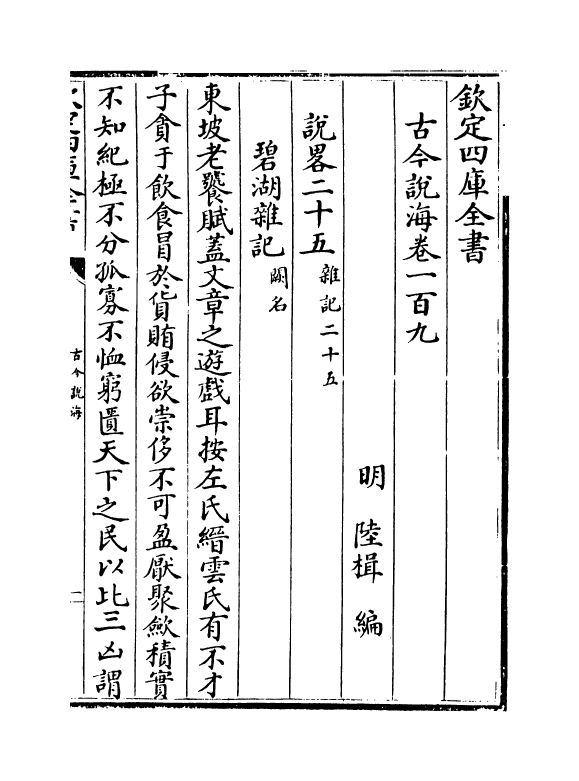 欽定四庫全書
古今說海卷一百九
明 陸楫 編
說畧二十五 雜記二十五
碧湖雜記 闕名
東坡老饕賦蓋文章之遊戲耳按左氏縉雲氏有不才
子貪于飲食冒於貨賄侵欲崇侈不可盈厭聚歛積實
不知紀極不分孤寡不恤窮匱天下之民以比三凶謂
古今說海